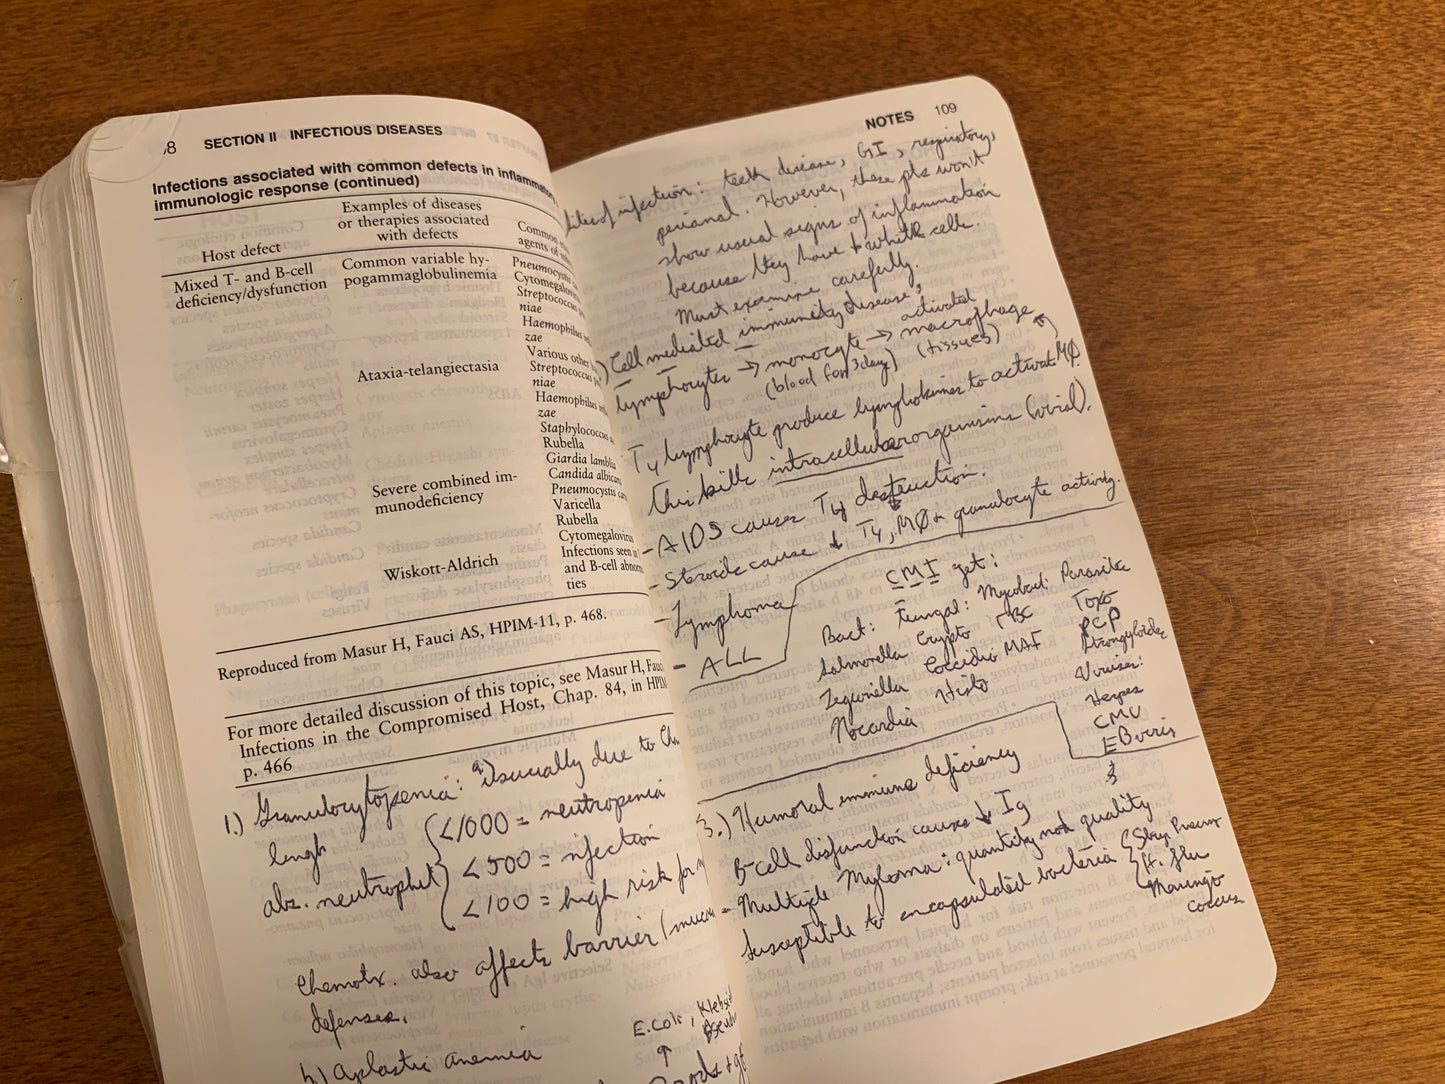 8 SECTION II INFECTIOUS DISEASES
Infections associated with common defects in inflammatory
immunologic response (continued)
Host defect
Examples of diseases
or therapies associated
with defects
Common
agents of
Mixed T- and B-cell
deficiency/dysfunction
Common variable hy-
pogammaglobulinemia
Pneumocystis
Cytomegalovirus
Streptococcus
niae
Haemophilus
zae
Various other
Ataxia-telangiectasia
Streptococcus
niae
Haemophilus
zae
Staphylococcus
Rubella
Giardia lamblia
Candida albicans
Severe combined im-
munodeficiency
Pneumocystis
Varicella
Rubella
Cytomegalovirus
Wiskott-Aldrich
Infections seen in
and B-cell abnor
ties
Reproduced from Masur H, Fauci AS, HPIM-11, p. 468.
For more detailed discussion of this topic, see Masur H, Fauci
Infections in the Compromised Host, Chap. 84, in HPIM
p. 466
1.) Granulocytopenia: a) usually due to
abs. neutrophil
<1000 = neutropenia
<500 = infection
<100 = high risk for
Chemotx. also affects barrier
defenses.
b) aplastic anemia
E. Coli,
NOTES 109
of infection: teeth disease, GI, respiratory,
perianal. However, these pts won't
show usual signs of inflammation
because they have ↓ white cells.
Must examine carefully.
Cell mediated immunity disease;
lymphocytes → monocyte → activated macrophage
(blood for 3 days) (tissues)
T4 lymphocyte produce lymphokines to activate MØ
this kills intracellular organisms (viral).
- AIDS causes T4 destruction.
- Steroids cause ↓ T4, MØ + granulocyte activity.
- Lymphoma
- ALL
CMI get:
Bact: Fungal: Mycobact: Parasites
Salmonella Crypto TBC Toxo
Legionella Coccidio MAI PCP
Nocardia Histo Strongyloides
Viruses:
Herpes
CMV
3.) Humoral immune deficiency
B-cell disfunction causes ↓ Ig
- Multiple Myeloma: quantity not quality
Susceptible to encapsulated bacteria
Strep Pneum
H. flu
Meningo
coccus